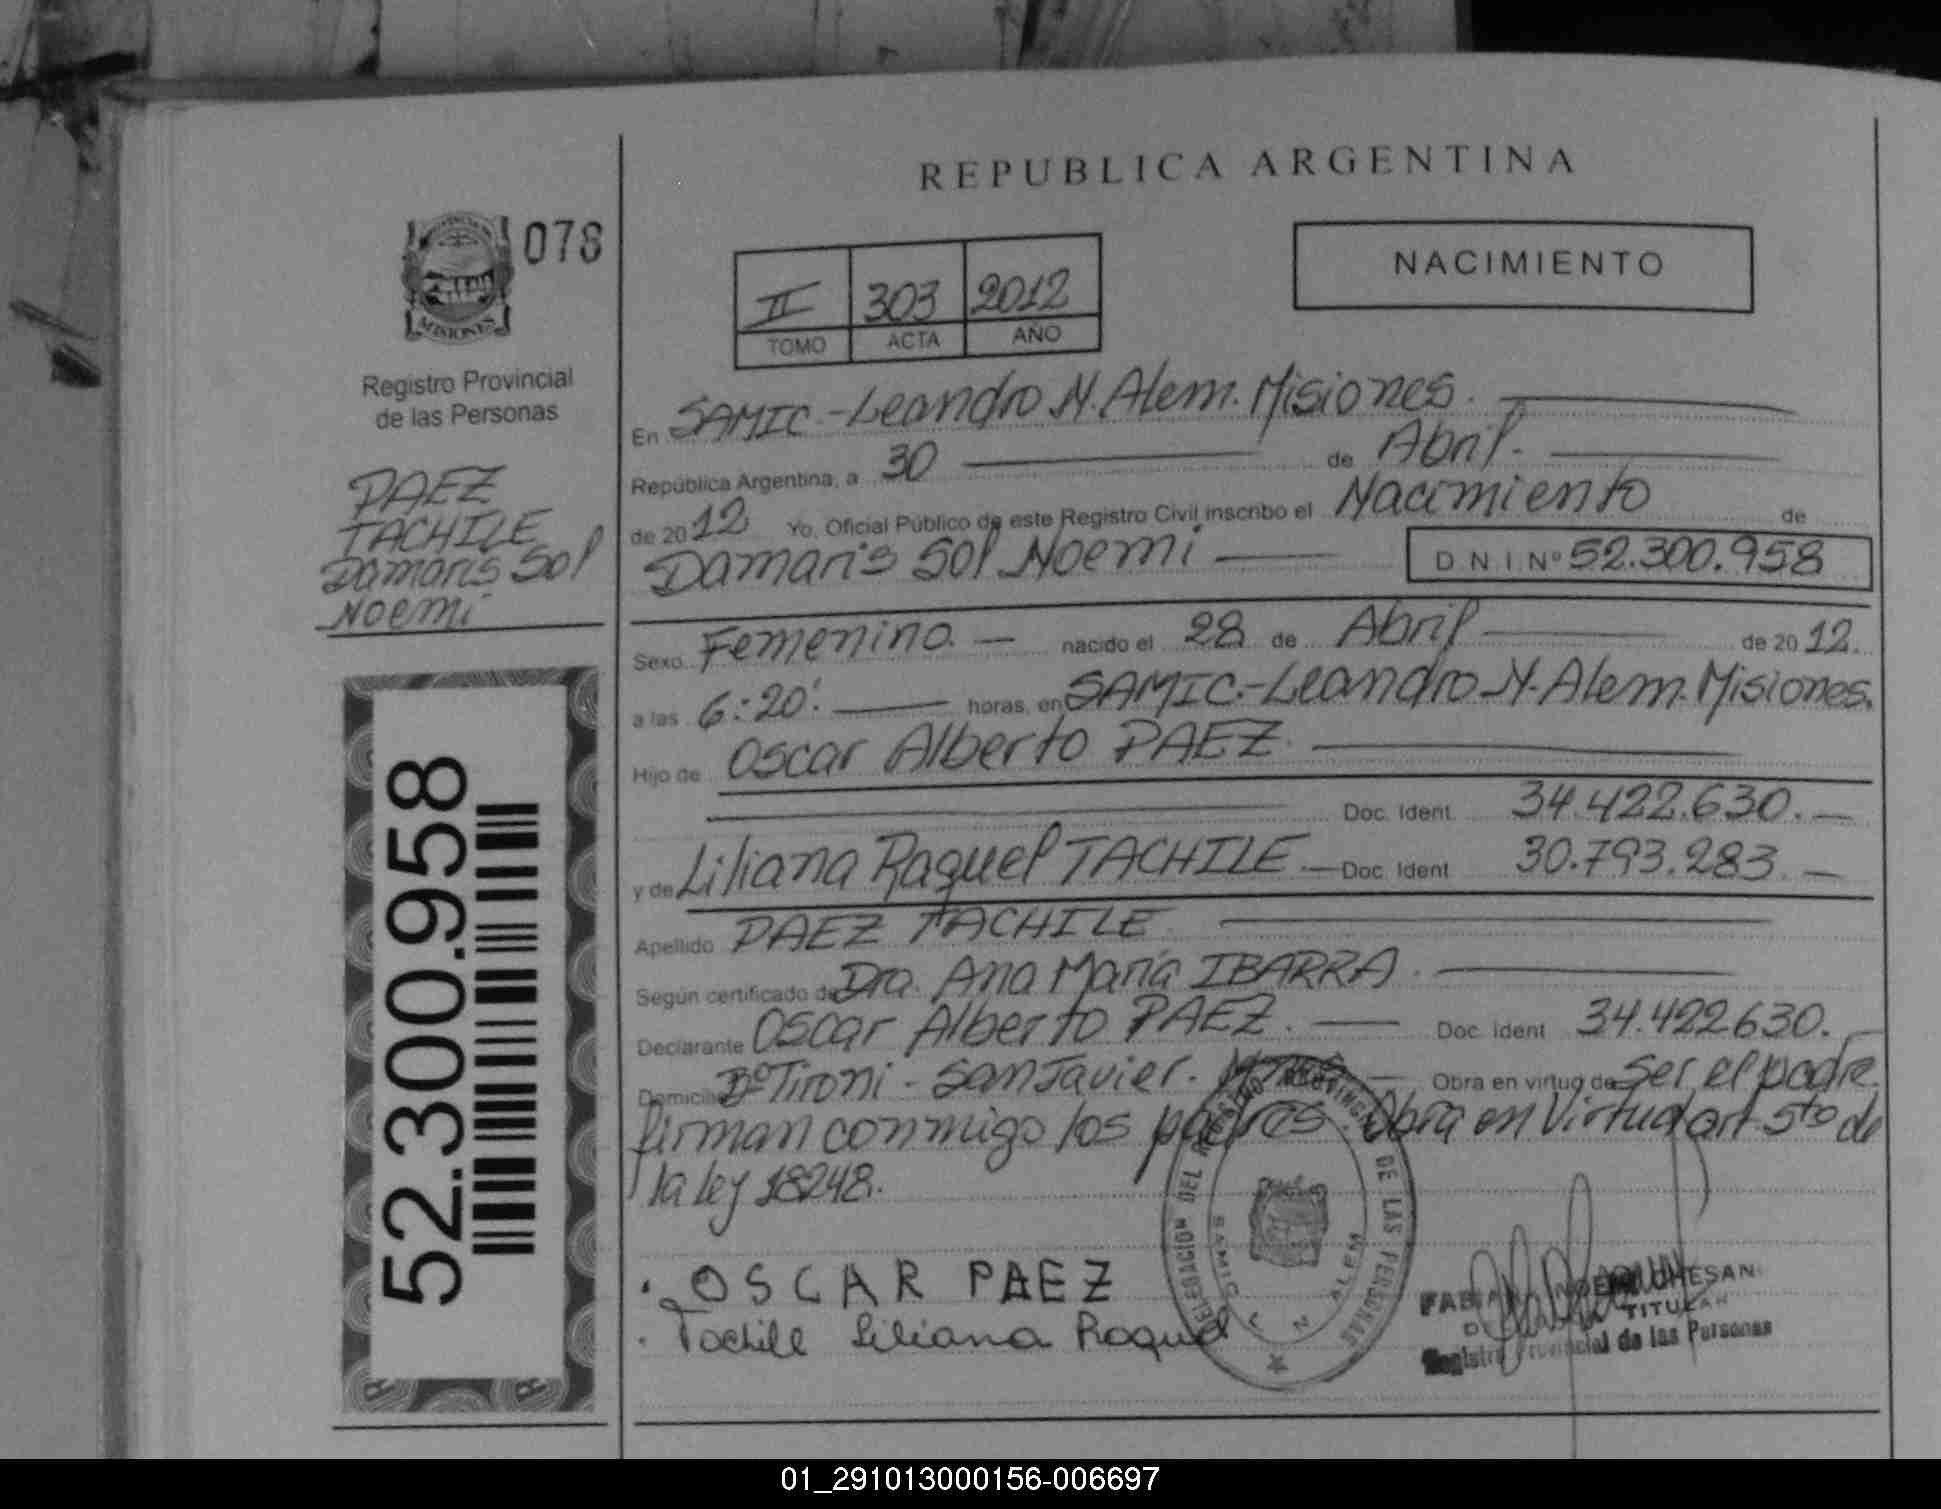 REPUBLICA ARGENTINA
078
MISIONES
Registro Provincial
de las Personas
PAEZ
TACHILE
Damaris Sol
Noemi
52.300.958
II 303 2012
TOMO ACTA AÑO
NACIMIENTO
En SAMIC.-Leandro N. Alem. Misiones.
República Argentina, a 30 de Abril.
de 2012 Yo, Oficial Público de este Registro Civil inscribo el Nacimiento de
Damaris Sol Noemi D N I Nº 52.300.958
Sexo Femenino. nacido el 28 de Abril de 2012.
a las 6:20' horas, en SAMIC.-Leandro N. Alem. Misiones.
Hijo de Oscar Alberto PAEZ.
Doc. Ident 34.422.630.
y de Liliana Raquel TACHILE. Doc. Ident 30.793.283.
Apellido PAEZ TACHILE
Según certificado de Dra. Ana María IBARRA.
Declarante Oscar Alberto PAEZ. Doc. Ident 34.422630.
Domicilio Bº Tironi - San Javier. Obra en virtud de ser el padre
firman conmigo los padres. Obra en Virtud art 5to de
la ley 18248.
DELEGACION DEL REGISTRO PROVINCIAL DE LAS PERSONAS
SAMIC L N ALEM
OSCAR PAEZ
Tachile Liliana Raquel
TITULAR
Registro Provincial de las Personas
01_291013000156-006697